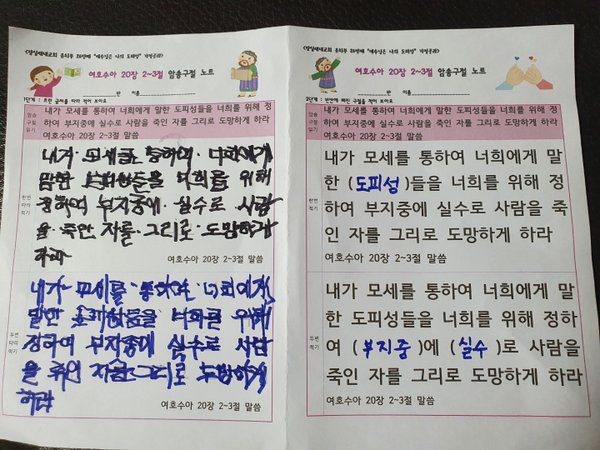 여호수아 20장 2~3절 암송구절 노트
반 이름
1단계 : 흐린 글씨를 따라 적어 보아요
암송
구절
읽기
내가 모세를 통하여 너희에게 말한 도피성들을 너희를 위해 정
하여 부지중에 실수로 사람을 죽인 자를 그리로 도망하게 하라
여호수아 20장 2~3절 말씀
한번
따라
적기
내가 모세를 통하여 너희에게
말한 도피성들을 너희를 위해
정하여 부지중에 실수로 사람
을 죽인 자를 그리로 도망하게
하라
여호수아 20장 2~3절 말씀
두번
따라
적기
내가 모세를 통하여 너희에게
말한 도피성들을 너희를 위해
정하여 부지중에 실수로 사람
을 죽인 자를 그리로 도망하게
하라
여호수아 20장 2~3절 말씀
여호수아 20장 2~3절 암송구절 노트
반 이름
2단계 : 빈칸에 빠진 구절을 적어 보아요
암송
구절
읽기
내가 모세를 통하여 너희에게 말한 도피성들을 너희를 위해 정
하여 부지중에 실수로 사람을 죽인 자를 그리로 도망하게 하라
여호수아 20장 2~3절 말씀
한번
적기
내가 모세를 통하여 너희에게 말
한 (도피성)들을 너희를 위해 정
하여 부지중에 실수로 사람을 죽
인 자를 그리로 도망하게 하라
여호수아 20장 2~3절 말씀
두번
적기
내가 모세를 통하여 너희에게 말
한 도피성들을 너희를 위해 정하
여 (부지중)에 (실수)로 사람을
죽인 자를 그리로 도망하게 하라
여호수아 20장 2~3절 말씀